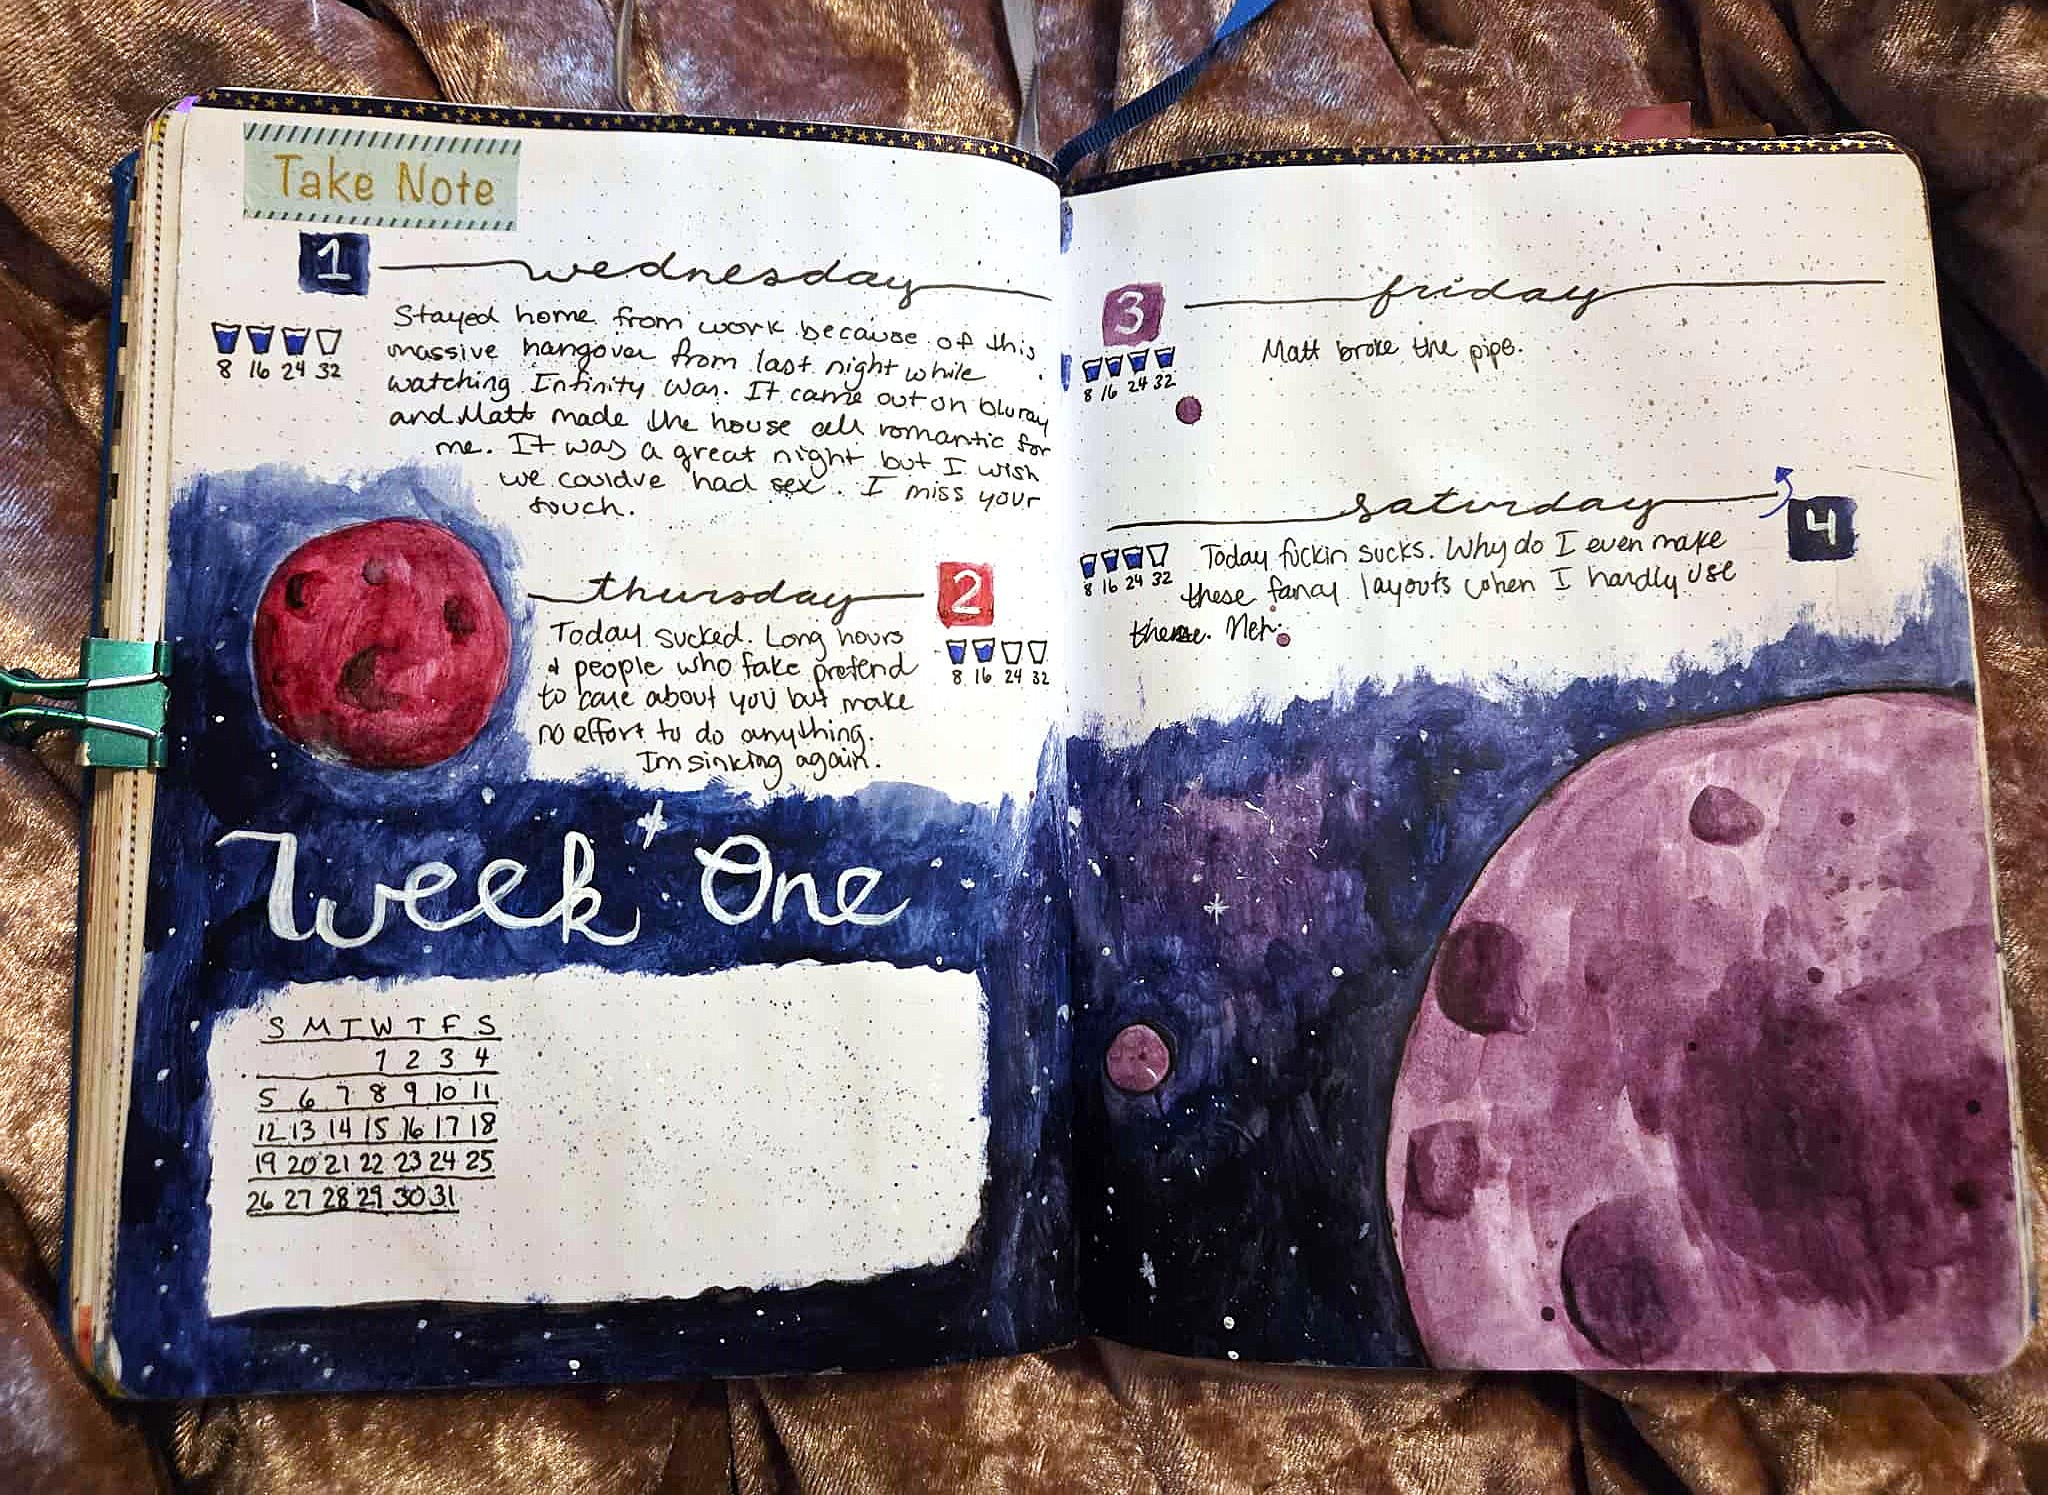 Take Note
1 wednesday
Stayed home from work because of this
massive hangover from last night while
watching Infinity War. It came out on bluray
and Matt made the house all romantic for
me. It was a great night but I wish
we couldve had sex. I miss your
touch.
8 16 24 32
thursday 2
Today sucked. Long hours
& people who fake pretend
to care about you but make
no effort to do anything.
Im sinking again.
8 16 24 32
Week One
S M T W T F S
1 2 3 4
5 6 7 8 9 10 11
12 13 14 15 16 17 18
19 20 21 22 23 24 25
26 27 28 29 30 31
3 friday
Matt broke the pipe.
8 16 24 32
saturday 4
Today fuckin sucks. Why do I even make
these fancy layouts when I hardly use
them. Meh.
8 16 24 32